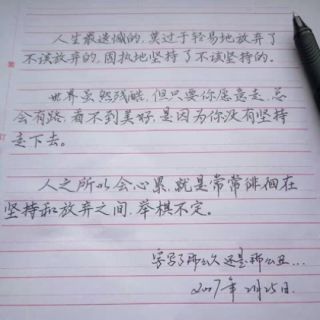 人生最遗憾的,莫过于轻易地放弃了
不该放弃的,固执地坚持了不该坚持的。
世界虽然残酷,但只要你愿意走,总
会有路,看不到美好,是因为你没有坚持
走下去。
人之所以会心累,就是常常徘徊在
坚持和放弃之间,举棋不定。
字写了那么久还是那么丑...
2007年2月25日.